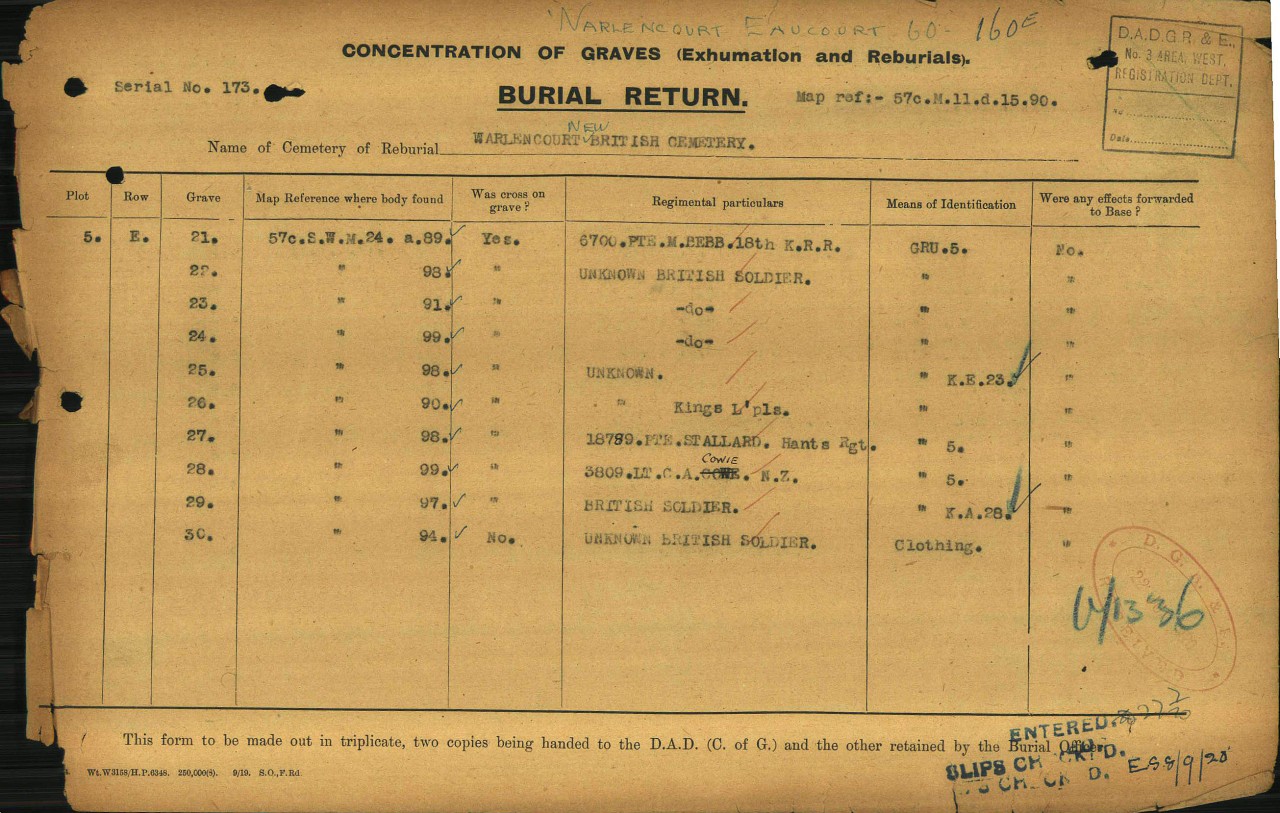 WARLENCOURT EAUCOURT 60 - 160E
CONCENTRATION OF GRAVES (Exhumation and Reburials).
D.A.D.G.R. & E.,
No. 3 AREA, WEST,
REGISTRATION DEPT.
No
Date
Serial No. 173.
BURIAL RETURN.
Map ref:- 57c.M.11.d.15.90.
Name of Cemetery of Reburial WARLENCOURT NEW BRITISH CEMETERY.
Plot Row Grave Map Reference where body found Was cross on grave? Regimental particulars Means of Identification Were any effects forwarded to Base?
5. E. 21. 57c.S.W.M.24. a.89. Yes. 6700.PTE.M.BEBB.18th K.R.R. GRU.5. No.
22. " 98. " UNKNOWN BRITISH SOLDIER. " "
23. " 91. " -do- " "
24. " 99. " -do- " "
25. " 98. " UNKNOWN. " K.E.23. "
26. " 90. " " Kings L'pls. " "
27. " 98. " 18789.PTE.STALLARD. Hants Rgt. " 5. "
28. " 99. " 3809.LT.C.A.COWE. COWIE N.Z. " 5. "
29. " 97. " BRITISH SOLDIER. " K.A.28. "
30. " 94. No. UNKNOWN BRITISH SOLDIER. Clothing. "
D. G. R. & E.
RECEIVED
This form to be made out in triplicate, two copies being handed to the D.A.D. (C. of G.) and the other retained by the Burial Officer.
Wt.W3158/H.P.6348. 250,000(8). 9/19. S.O.,F.Rd.
ENTERED.
SLIPS CH CK D.
S CH CK D. ES 8/9/20